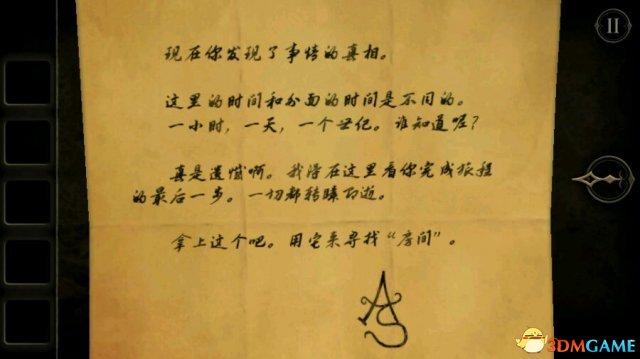 现在你发现了事情的真相。
这里的时间和外面的时间是不同的。
一小时，一天，一个世纪。谁知道呢？
真是遗憾啊。我得在这里看你完成旅程
的最后一步。一切都转瞬即逝。
拿上这个吧。用它来寻找“房间”。
AS
3DMGAME